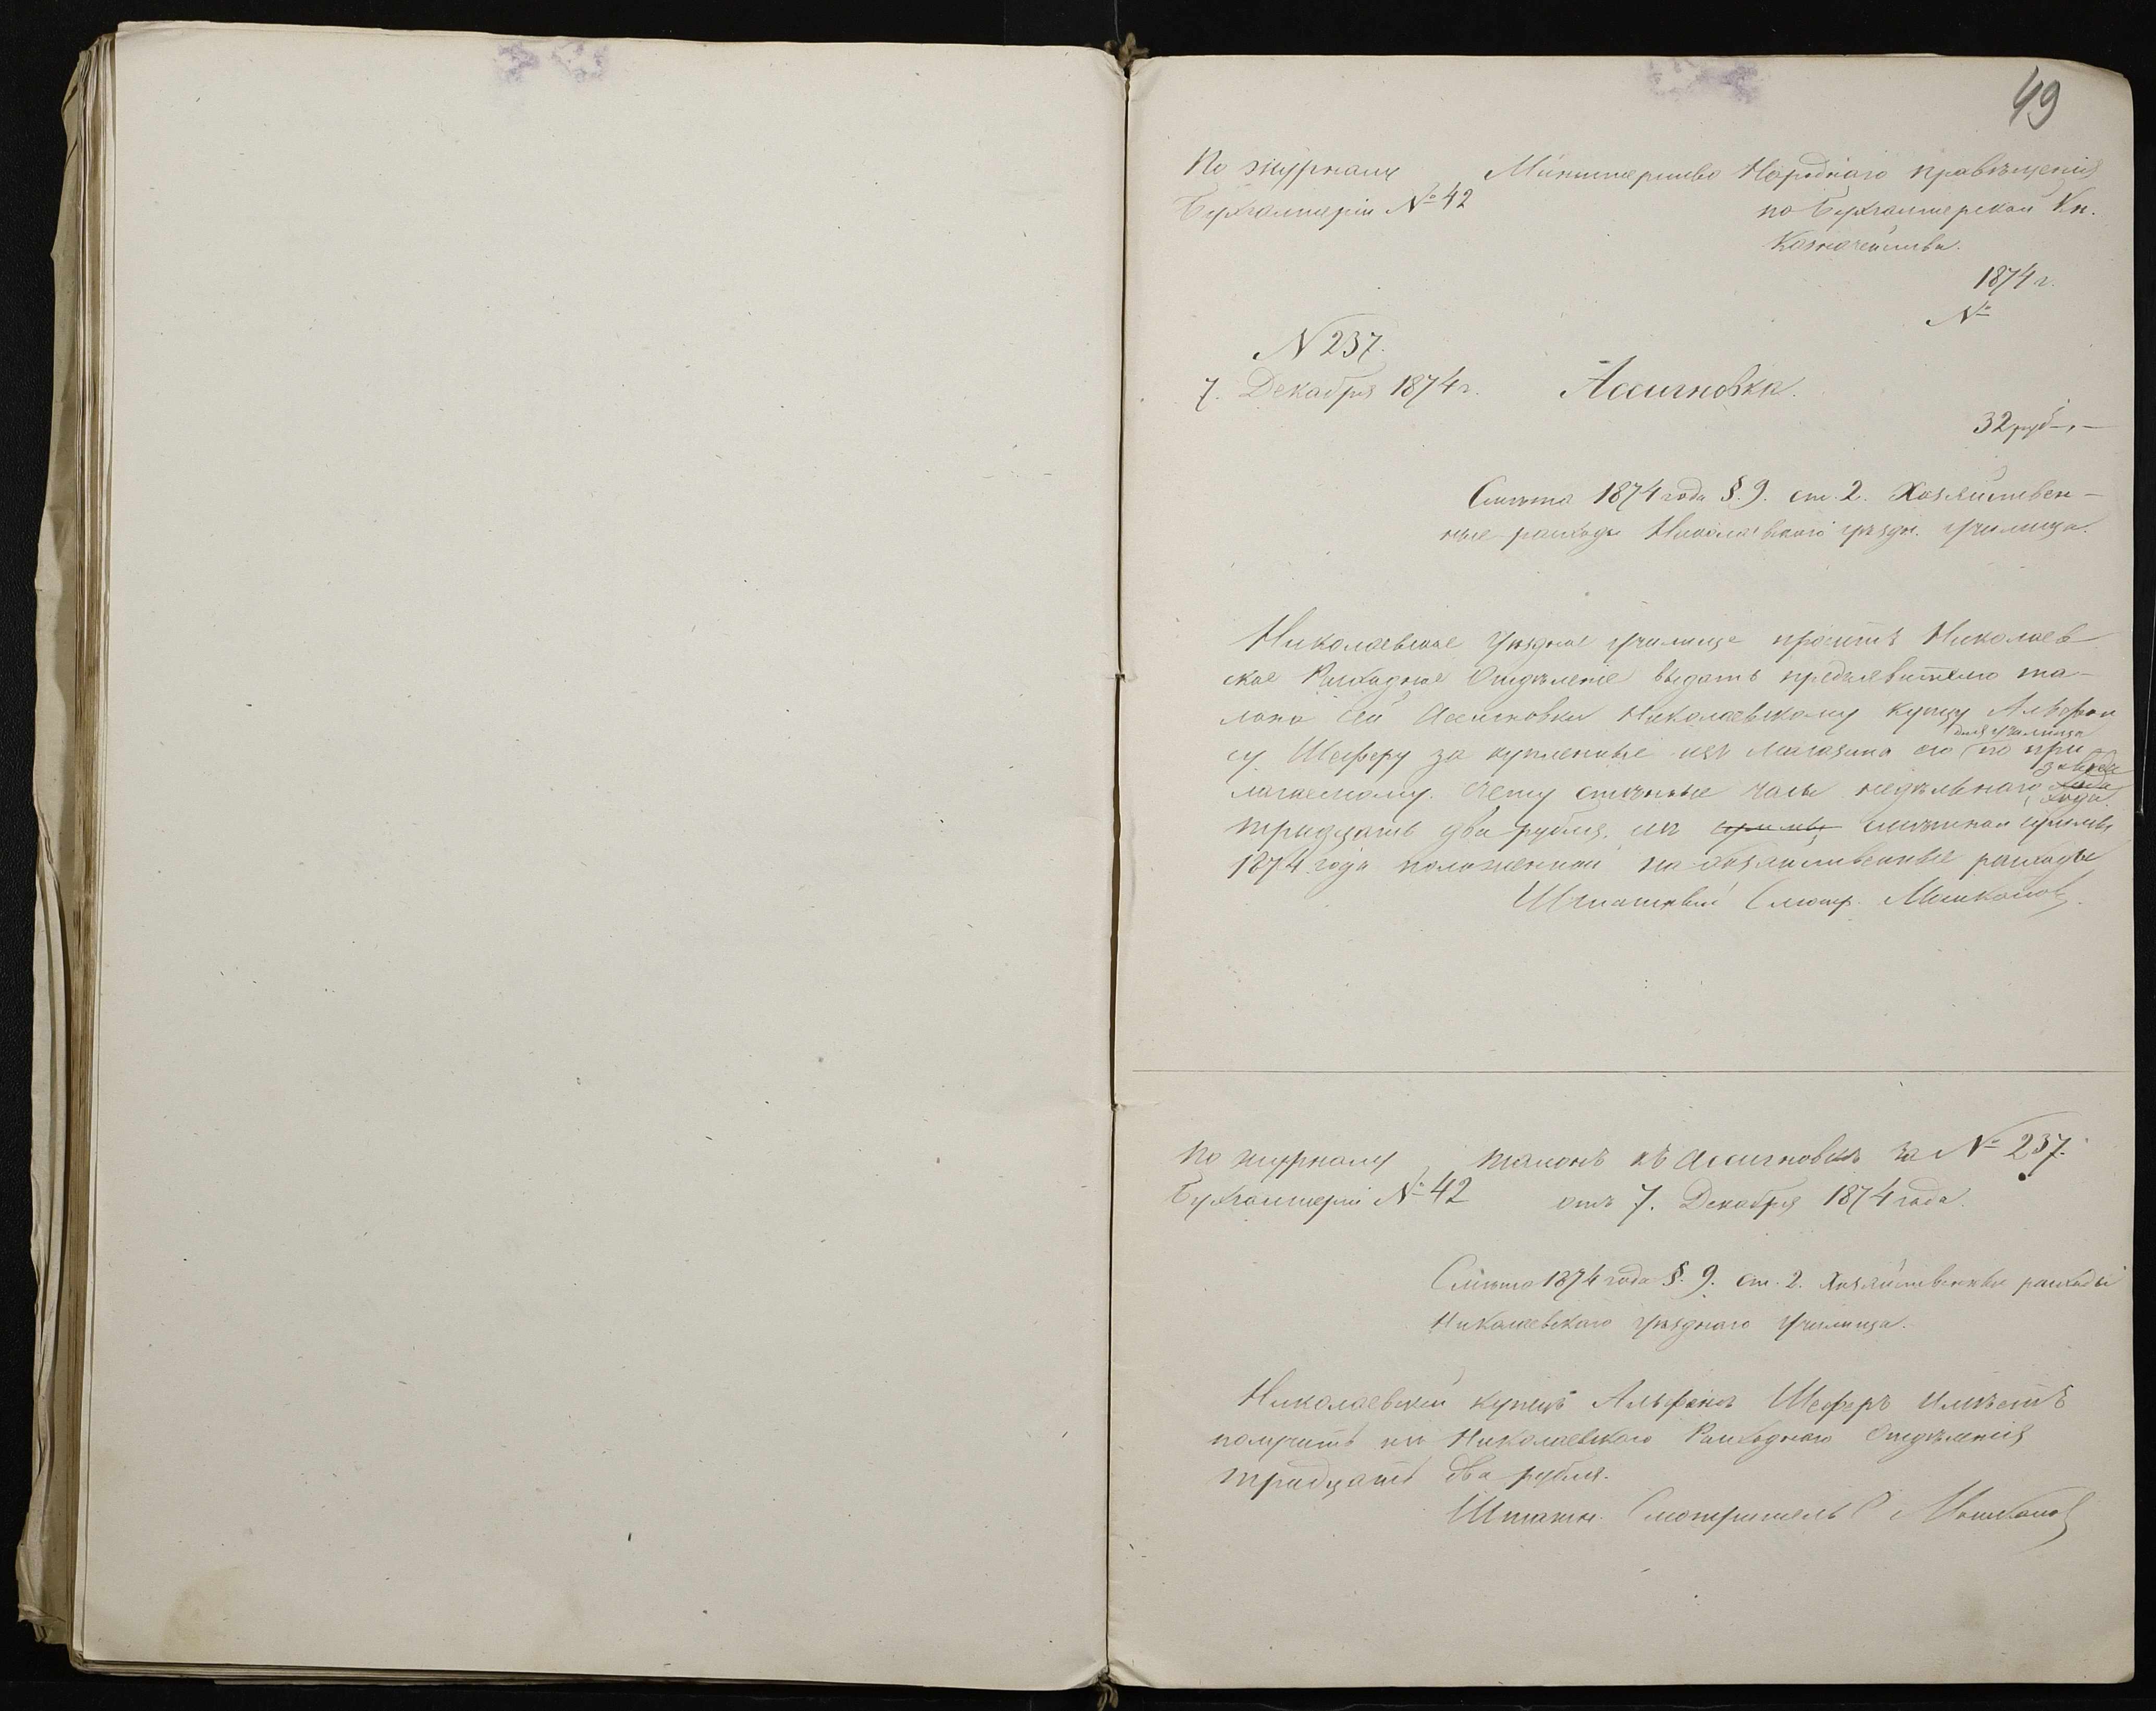 49
По журналу
Бухгалтеріи № 42
Министерство Народнаго просвѣщенія
по Бухгалтерской Кн.
Казначейства.
1874 г.
№
N 237.
7. Декабря 1874 г.
Ассигновка.
32 руб -, -
Смѣта 1874 года §. 9. ст. 2. Хозяйствен-
ные расходы Николаевскаго уѣздн. училища.
Николаевское Уѣздное училище проситъ Николаев
ское Расходное Отдѣленіе выдать предъявителю та-
лона сей Ассигновки Николаевскому купцу Альфон
су Шеферу за купленные изъ магазина его для училища по при
лагаемому счету стѣнные часы недѣльнаго завода
хода
тридцать два рубля, изъ суммы смѣтной суммы
1874 года положенной на хозяйственные расходы
Штатный Смотр. Машковъ
По журналу
Бухгалтеріи № 42
Талонъ къ Ассигновкѣ за № 237.
отъ 7. Декабря 1874 года.
Смѣта 1874 года §. 9. ст. 2. Хозяйственные расходы
Николаевскаго уѣзднаго училища.
Николаевскій купецъ Альфонсъ Шеферъ имѣетъ
получить изъ Николаевскаго Расходнаго Отдѣленія
тридцать два рубля.
Штатн. Смотритель Машковъ